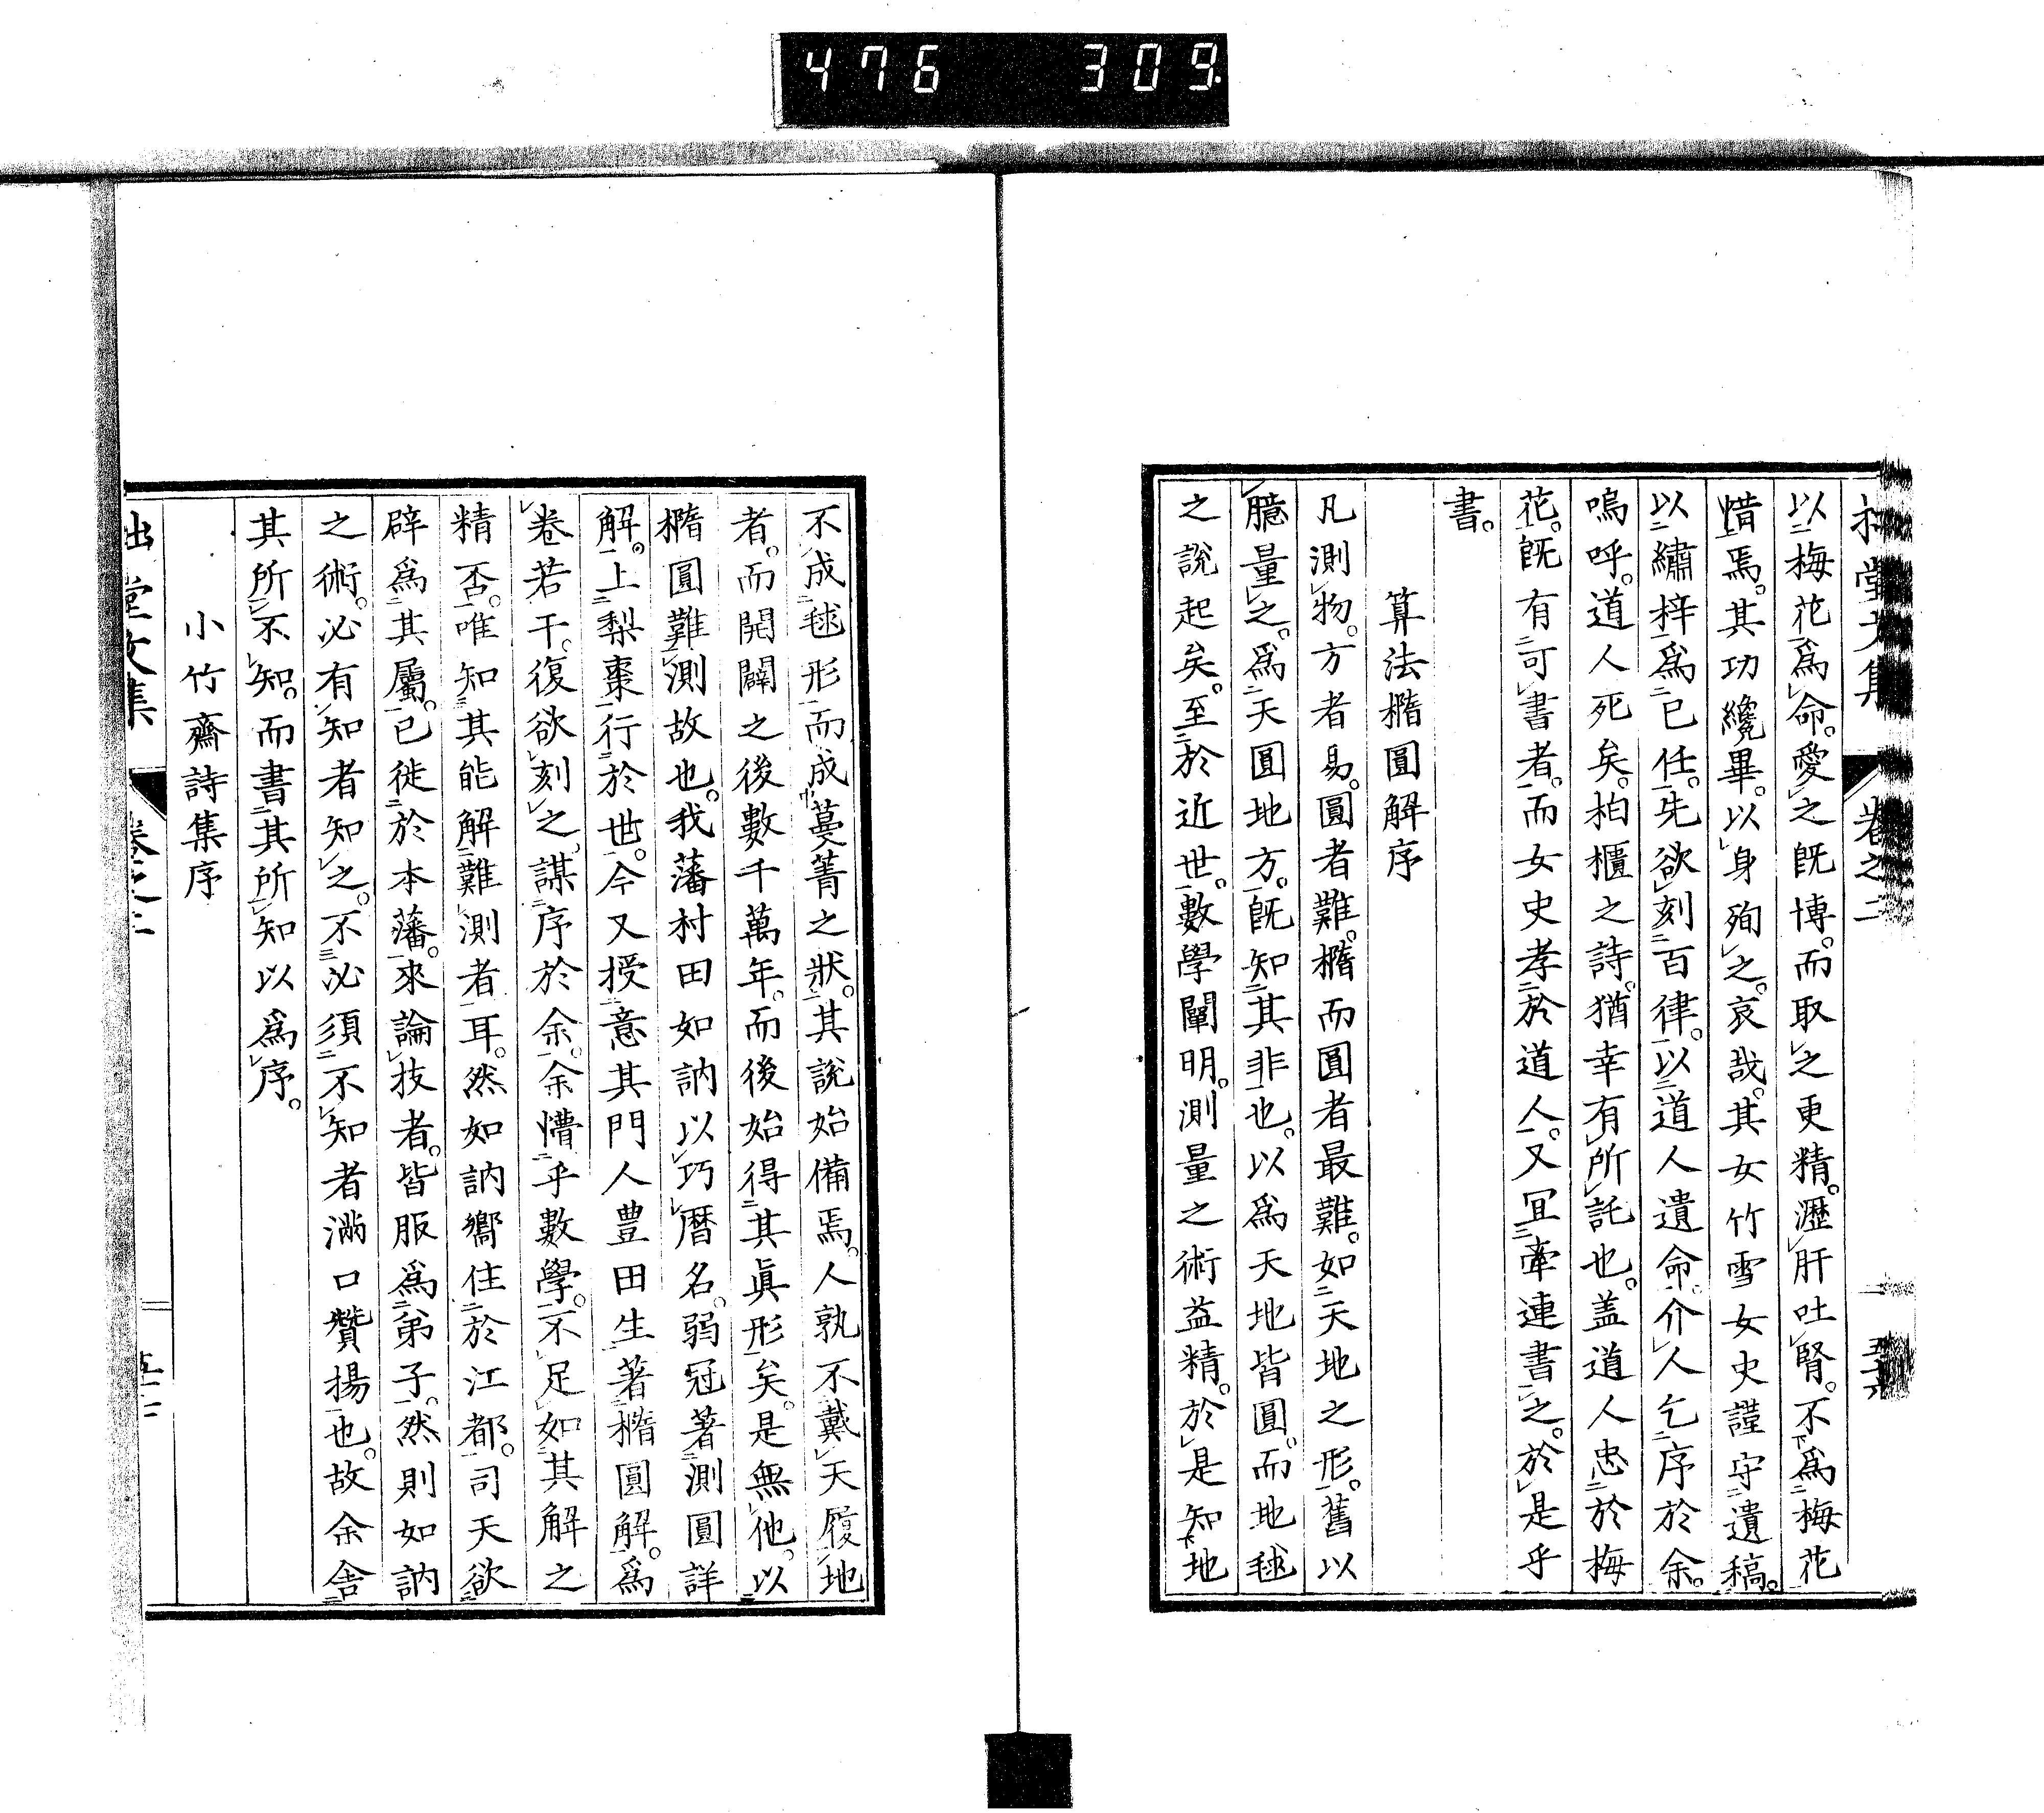 476 309
堂文集 卷之二
以梅花爲命。愛之既博。而取之更精。瀝肝吐腎。不爲梅花
惜焉。其功纔畢。以身殉之。哀哉。其女竹雪女史謹守遺稿。
以繡梓爲已任。先欲刻百律。以道人遺命。介人乞序於余。
嗚呼。道人死矣。柏櫃之詩。猶幸有所託也。盖道人忠於梅
花。既有可書者。而女史孝於道人。又宜牽連書之。於是乎
書。
算法橢圓解序
凡測物。方者易。圓者難。橢而圓者最難。如天地之形。舊以
臆量之。爲天圓地方。既知其非也。以爲天地皆圓。而地毬
之說起矣。至於近世。數學闡明。測量之術益精。於是知地
不成毬形而成蔓菁之狀。其說始備焉。人孰不戴天履地
者。而開闢之後數千萬年。而後始得其眞形矣。是無他。以
橢圓難測故也。我藩村田如訥以巧曆名。弱冠著測圓詳
解。上梨棗行於世。今又授意其門人豊田生著橢圓解。爲
卷若干。復欲刻之。謀序於余。余懵乎數學。不足如其解之
精否。唯知其能解難測者耳。然如訥嚮住於江都。司天欲
辟爲其屬。已徙於本藩。來論技者。皆服爲弟子。然則如訥
之術。必有知者知之。不必須不知者滿口贊揚也。故余舍
其所不知。而書其所知以爲序。
小竹齋詩集序
拙堂文集 卷之二